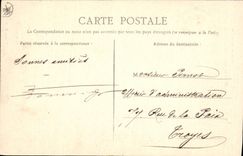 CARTE POSTALE
La Correspondance au recto n'est pas acceptée par tous les pays étrangers (se renseigner à la Poste)
Partie réservée à la correspondance
Adresse du destinataire
Bonnes amitiés
Monsieur
Officier d'administration
Rue de la Paix
Troyes